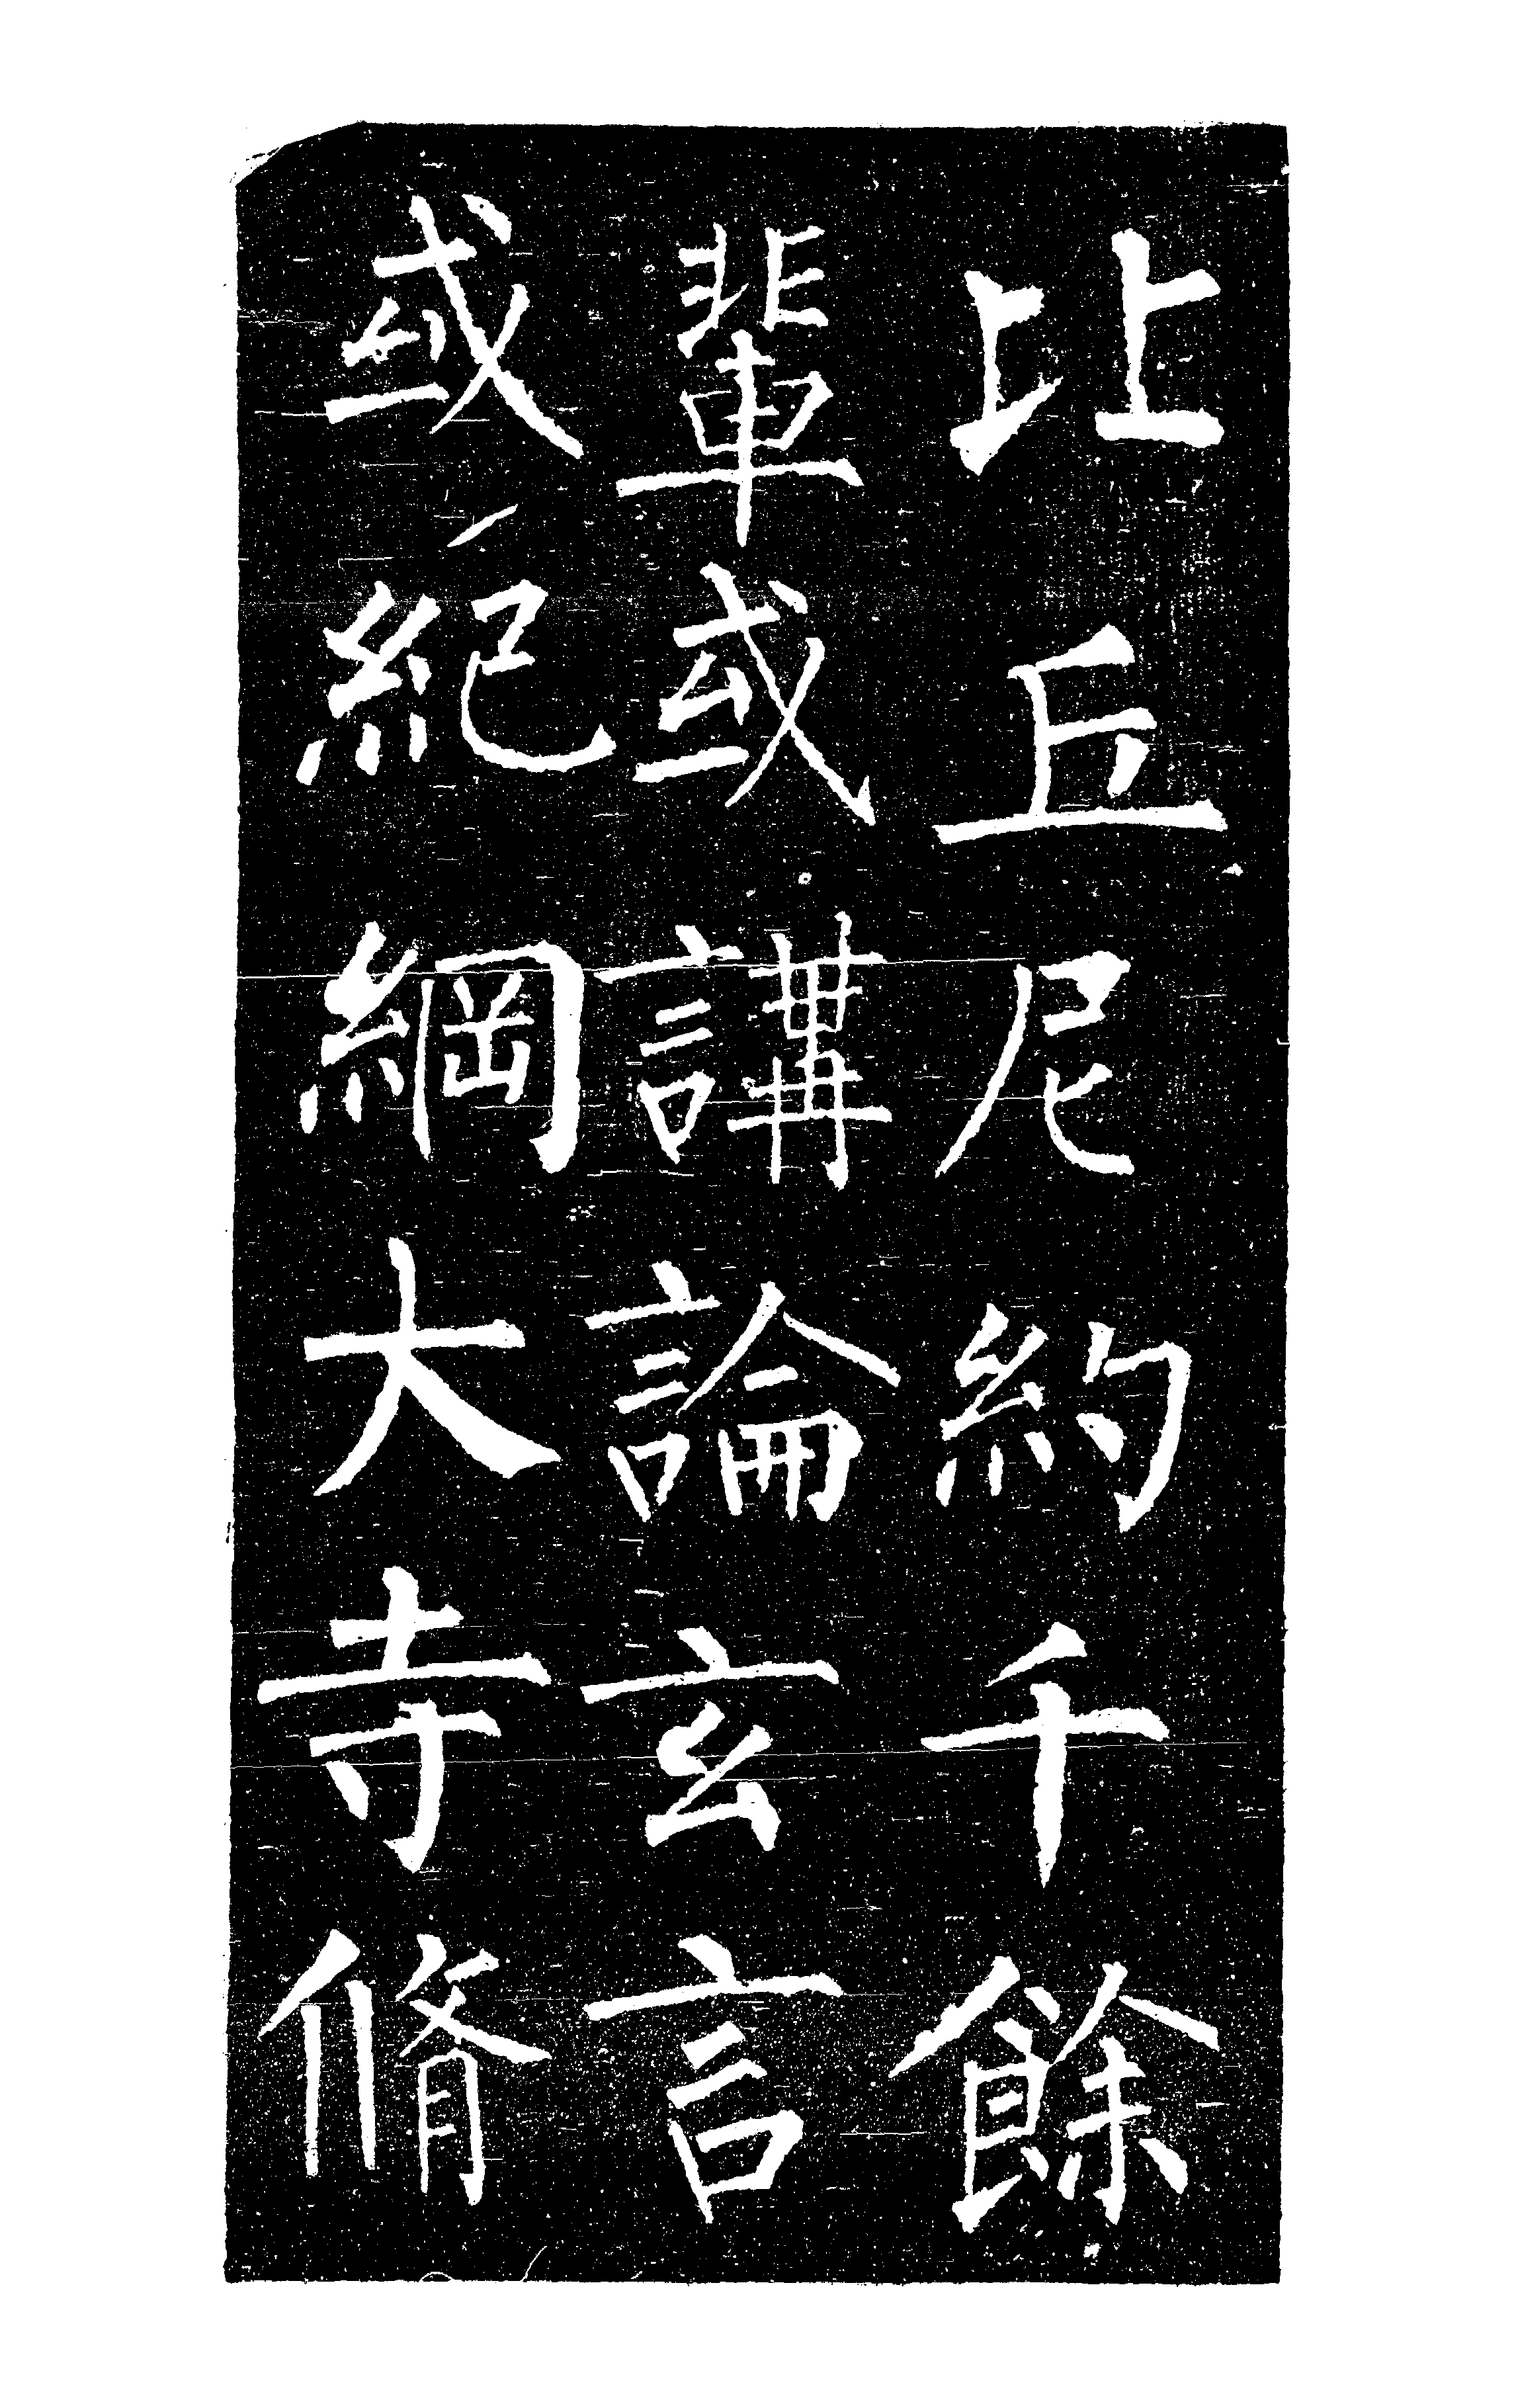 比丘尼約千餘
輩或講論玄言
或紀綱大寺脩